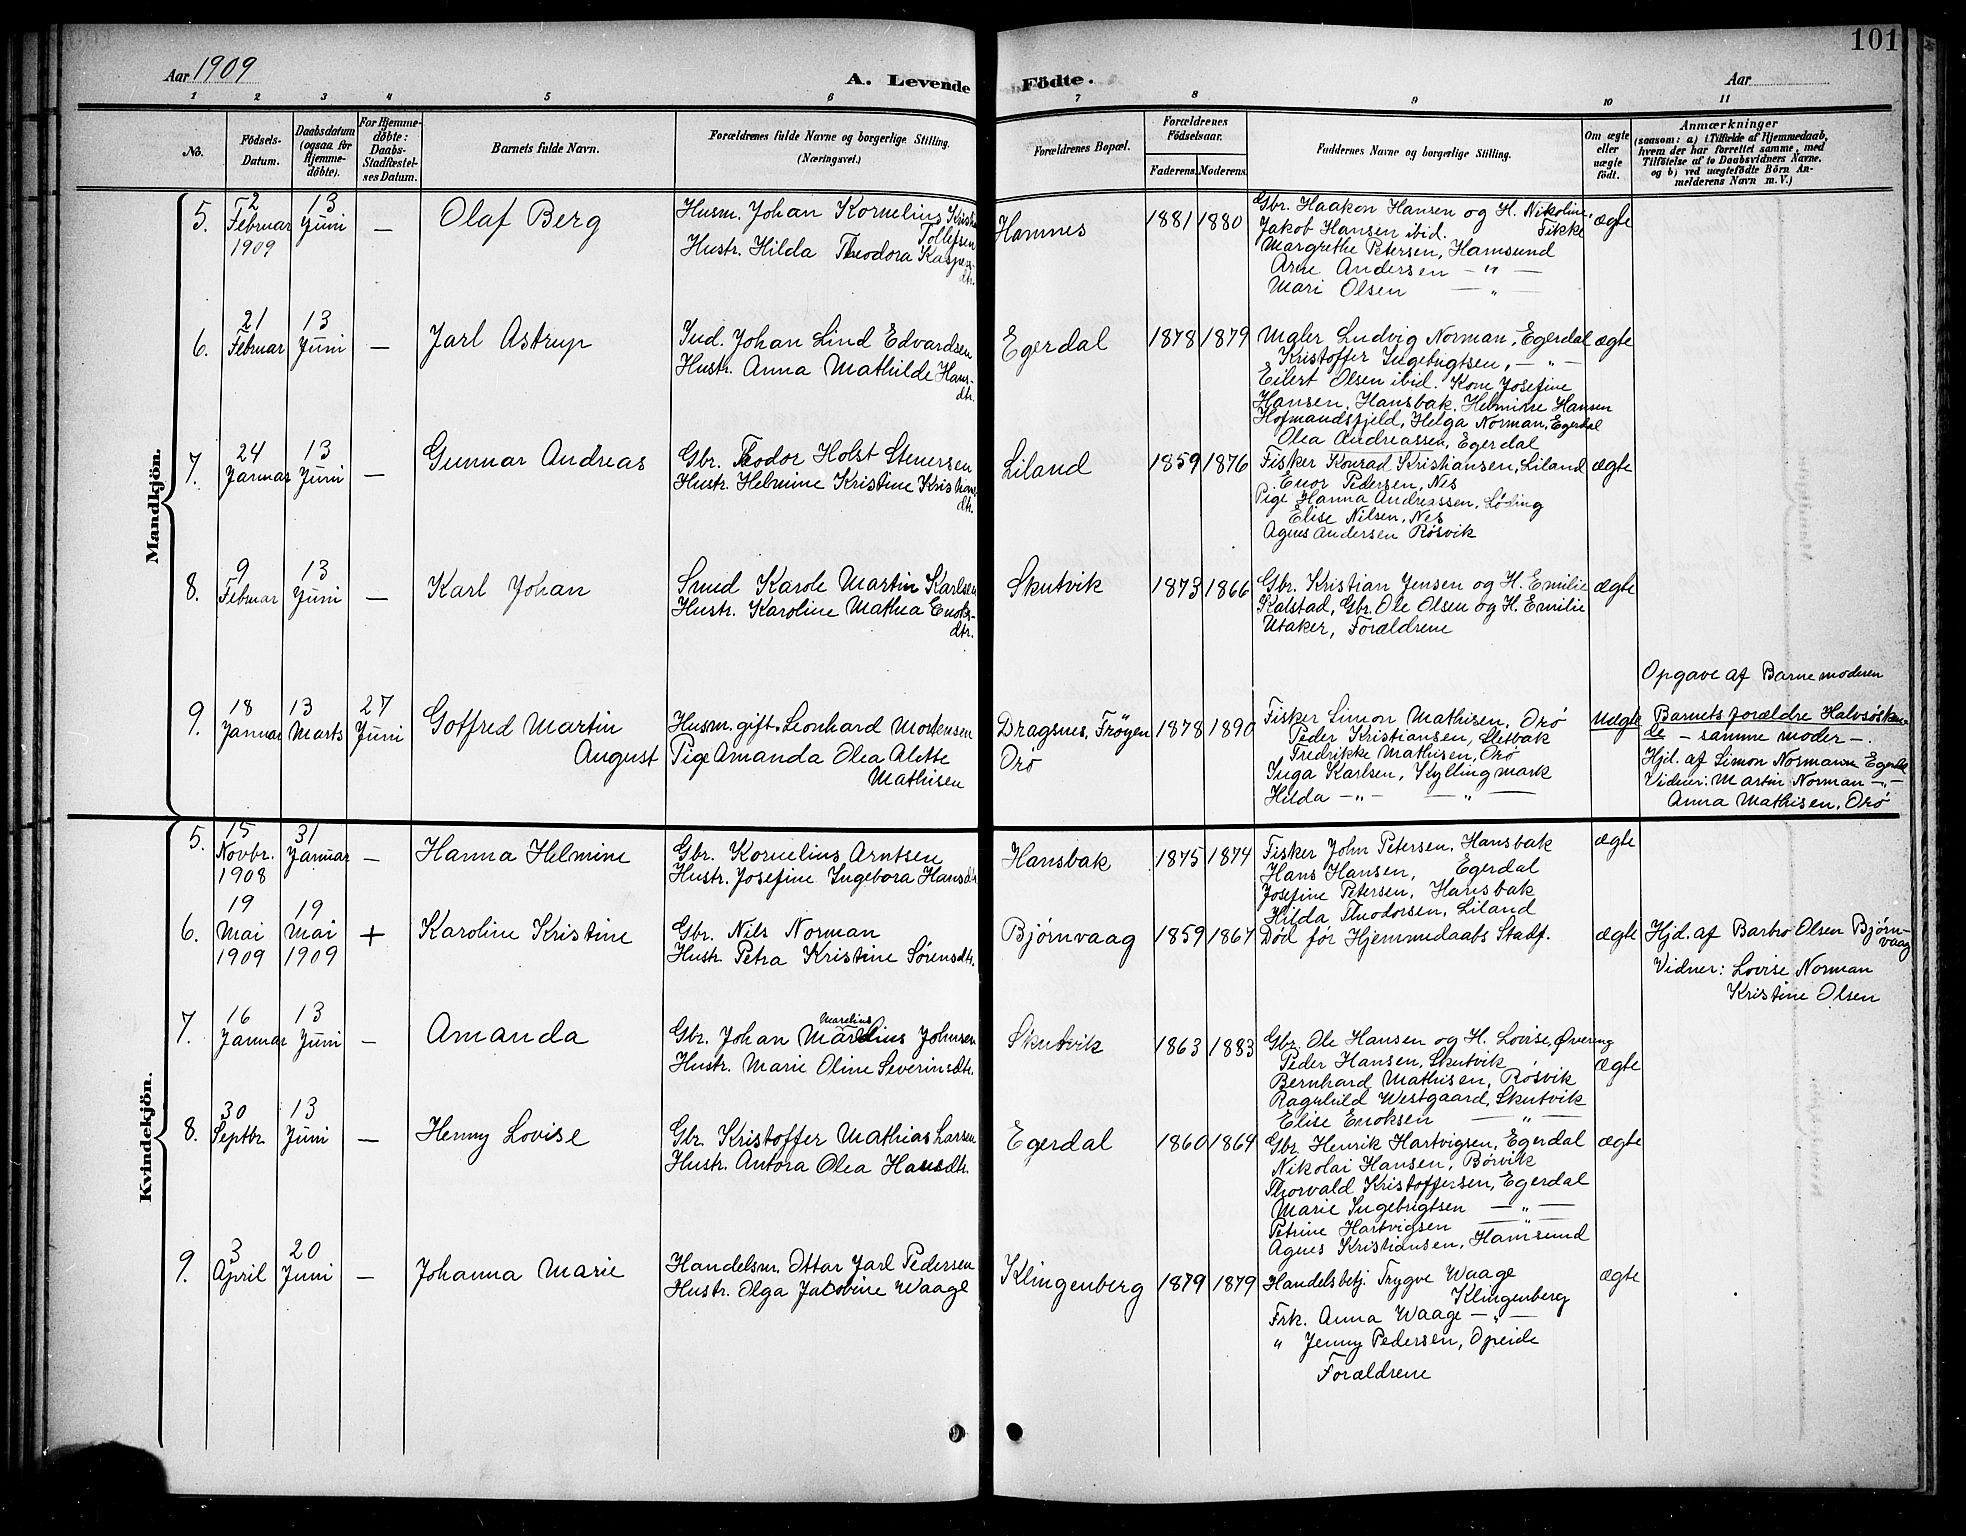 101
Aar 1909
A. Levende Födte.
Aar
1 2 3 4 5 6 7 8 9 10 11
No.
Födsels-
Datum.
Daabsdatum
(ogsaa for
Hjemme-
döbte).
For Hjemme-
döbte:
Daabs-
Stadfæstel-
ses Datum.
Barnets fulde Navn.
Forældrenes fulde Navne og borgerlige Stilling.
(Næringsvei.)
Forældrenes Bopæl.
Forældrenes
Födselsaar.
Faderens. Moderens.
Faddernes Navne og borgerlige Stilling.
Om ægte
eller
uægte
födt.
Anmærkninger
(saasom: a) i Tilfælde af Hjemmedaab,
hvem der har forrettet samme, med
Tilföielse af to Daabsvidners Navne.
og b) ved uægtefödte Börn An-
melderens Navn m. V.)
Mandkjön.
5.
2
Februar
1909
13
Juni
—
Olaf Berg
Husm. Johan Kornelius
Tollefsen
Hustr. Hilda Theodora Kaspers-
dtr.
Hamnes
1881 1880
Gbr. Haakon Hansen og H. Nikoline,
Jakob Hansen ibid. Fikke
Margrethe Petersen, Hamsund
Arne Andersen — " —
Mari Olsen — " —
ægte
6.
21
Februar
13
Juni
—
Jarl Astrup
Ind. Johan Lind Edvardsen
Hustr. Anna Mathilde Hans-
dtr.
Egerdal
1878 1879
Maler Ludvig Norman, Egerdal
Kristoffer Ingebrigtsen, — " —
Eilert Olsen ibid. Kone Josefine
Hansen, Hansbak, Helmine Hansen
Hofmandsfjeld, Helga Norman, Egerdal
Olea Andreassen, Egerdal
ægte
7.
24
Januar
13
Juni
—
Gunnar Andreas
Gbr. Theodor Holst Stenersen
Hustr. Helmine Kristine Kristians-
dtr.
Liland
1859 1876
Fisker Konrad Kristiansen, Liland
Enor Pedersen, Nes
Pige Hanna Andreassen, Løding
Elise Nilsen, Nes
Agnes Andersen Røsvik
ægte
8.
9
Februar
13
Juni
—
Karl Johan
Smed Karole Martin Karlsen
Hustr. Karoline Mathea Enoks-
dtr.
Skutvik
1873 1866
Gbr. Kristian Jensen og H. Emilie
Kalstad, Gbr. Ole Olsen og H. Emilie
Utaker, Forældrene
ægte
9.
18
Januar
13
Marts
27
Juni
Gotfred Martin
August
Husm. gift. Leonhard Mortensen
Pige Amanda Olea Alette
Mathisen
Dragsnes, Frøyen
Orø
1878 1890
Fisker Simon Mathisen, Orø
Peder Kristiansen, Sletbak
Fredrikke Mathisen, Orø
Inga Karlsen, Kyllingmark
Hilda — " — — " —
Uægte
Opgave af Barnemoderen
Barnets forældre Halvsøsken-
de — samme moder —.
Hjd. af Simon Normann Egerdal
Vidner: Martin Norman — " —
Anna Mathisen, Orø
Kvindekjön.
5.
15
Novbr.
1908
31
Januar
—
Hanna Helmine
Gbr. Kornelius Arntsen
Hustr. Josefine Ingebora Hansdtr.
Hansbak
1875 1874
Fisker John Petersen, Hansbak
Hans Hansen, Egerdal
Josefine Petersen, Hansbak
Hilda Theodorsen, Liland
ægte
6.
19
Mai
1909
19
Mai
1909
+
Karoline Kristine
Gbr. Nils Norman
Hustr. Petra Kristine Sørensdtr.
Bjørnvaag
1859 1867
Død før Hjemmedaabs Stadf.
ægte
Hjd. af Barbro Olsen Bjørn-
vaag
Vidner: Lovise Norman
Kristine Olsen
7.
16
Januar
13
Juni
—
Amanda
Marelius
Gbr. Johan Marelius Johnsen
Hustr. Marie Oline Severinsdtr.
Skutvik
1863 1883
Gbr. Ole Hansen og H. Lovise, Øvereng
Peder Hansen, Skutvik
Bernhard Mathisen, Røsvik
Ragnhild Westgaard, Skutvik
Elise Enoksen — " —
ægte
8.
30
Septbr.
13
Juni
—
Henny Lovise
Gbr. Kristoffer Mathias Larsen
Hustr. Antora Olea Hansdtr.
Egerdal
1860 1864
Gbr. Henrik Hartvigsen, Egerdal
Nikolai Hansen, Børvik
Thorvald Kristoffersen, Egerdal
Marie Ingebrigtsen — " —
Petrine Hartvigsen — " —
Agnes Kristiansen, Hamsund
ægte
9.
3
April
20
Juni
—
Johanna Marie
Handelsm. Ottar Jarl Pedersen
Hustr. Olga Jacobine Waage
Klingenberg
1879 1879
Handelsbetj. Trygve Waage
Klingenberg
Frk. Anna Waage — " —
" Jenny Pedersen, Opeide
Forældrene
ægte